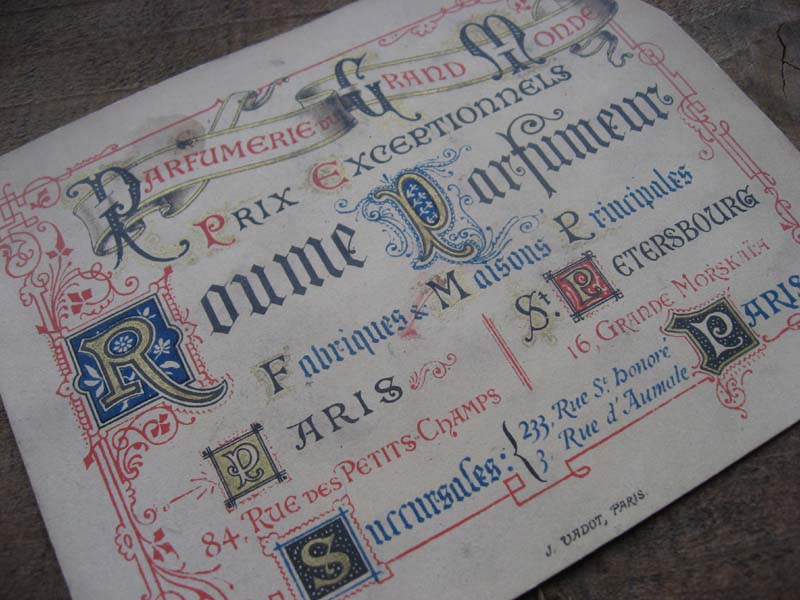 Parfumerie du Grand Monde
Prix Exceptionnels
Roume Parfumeur
Fabriques & Maisons Principales
Paris
84, Rue des Petits-Champs
St. Petersbourg
16, Grande Morskaïa
Succursales: 233, Rue St. Honoré
3, Rue d'Aumale
Paris
J. Vadot, Paris.